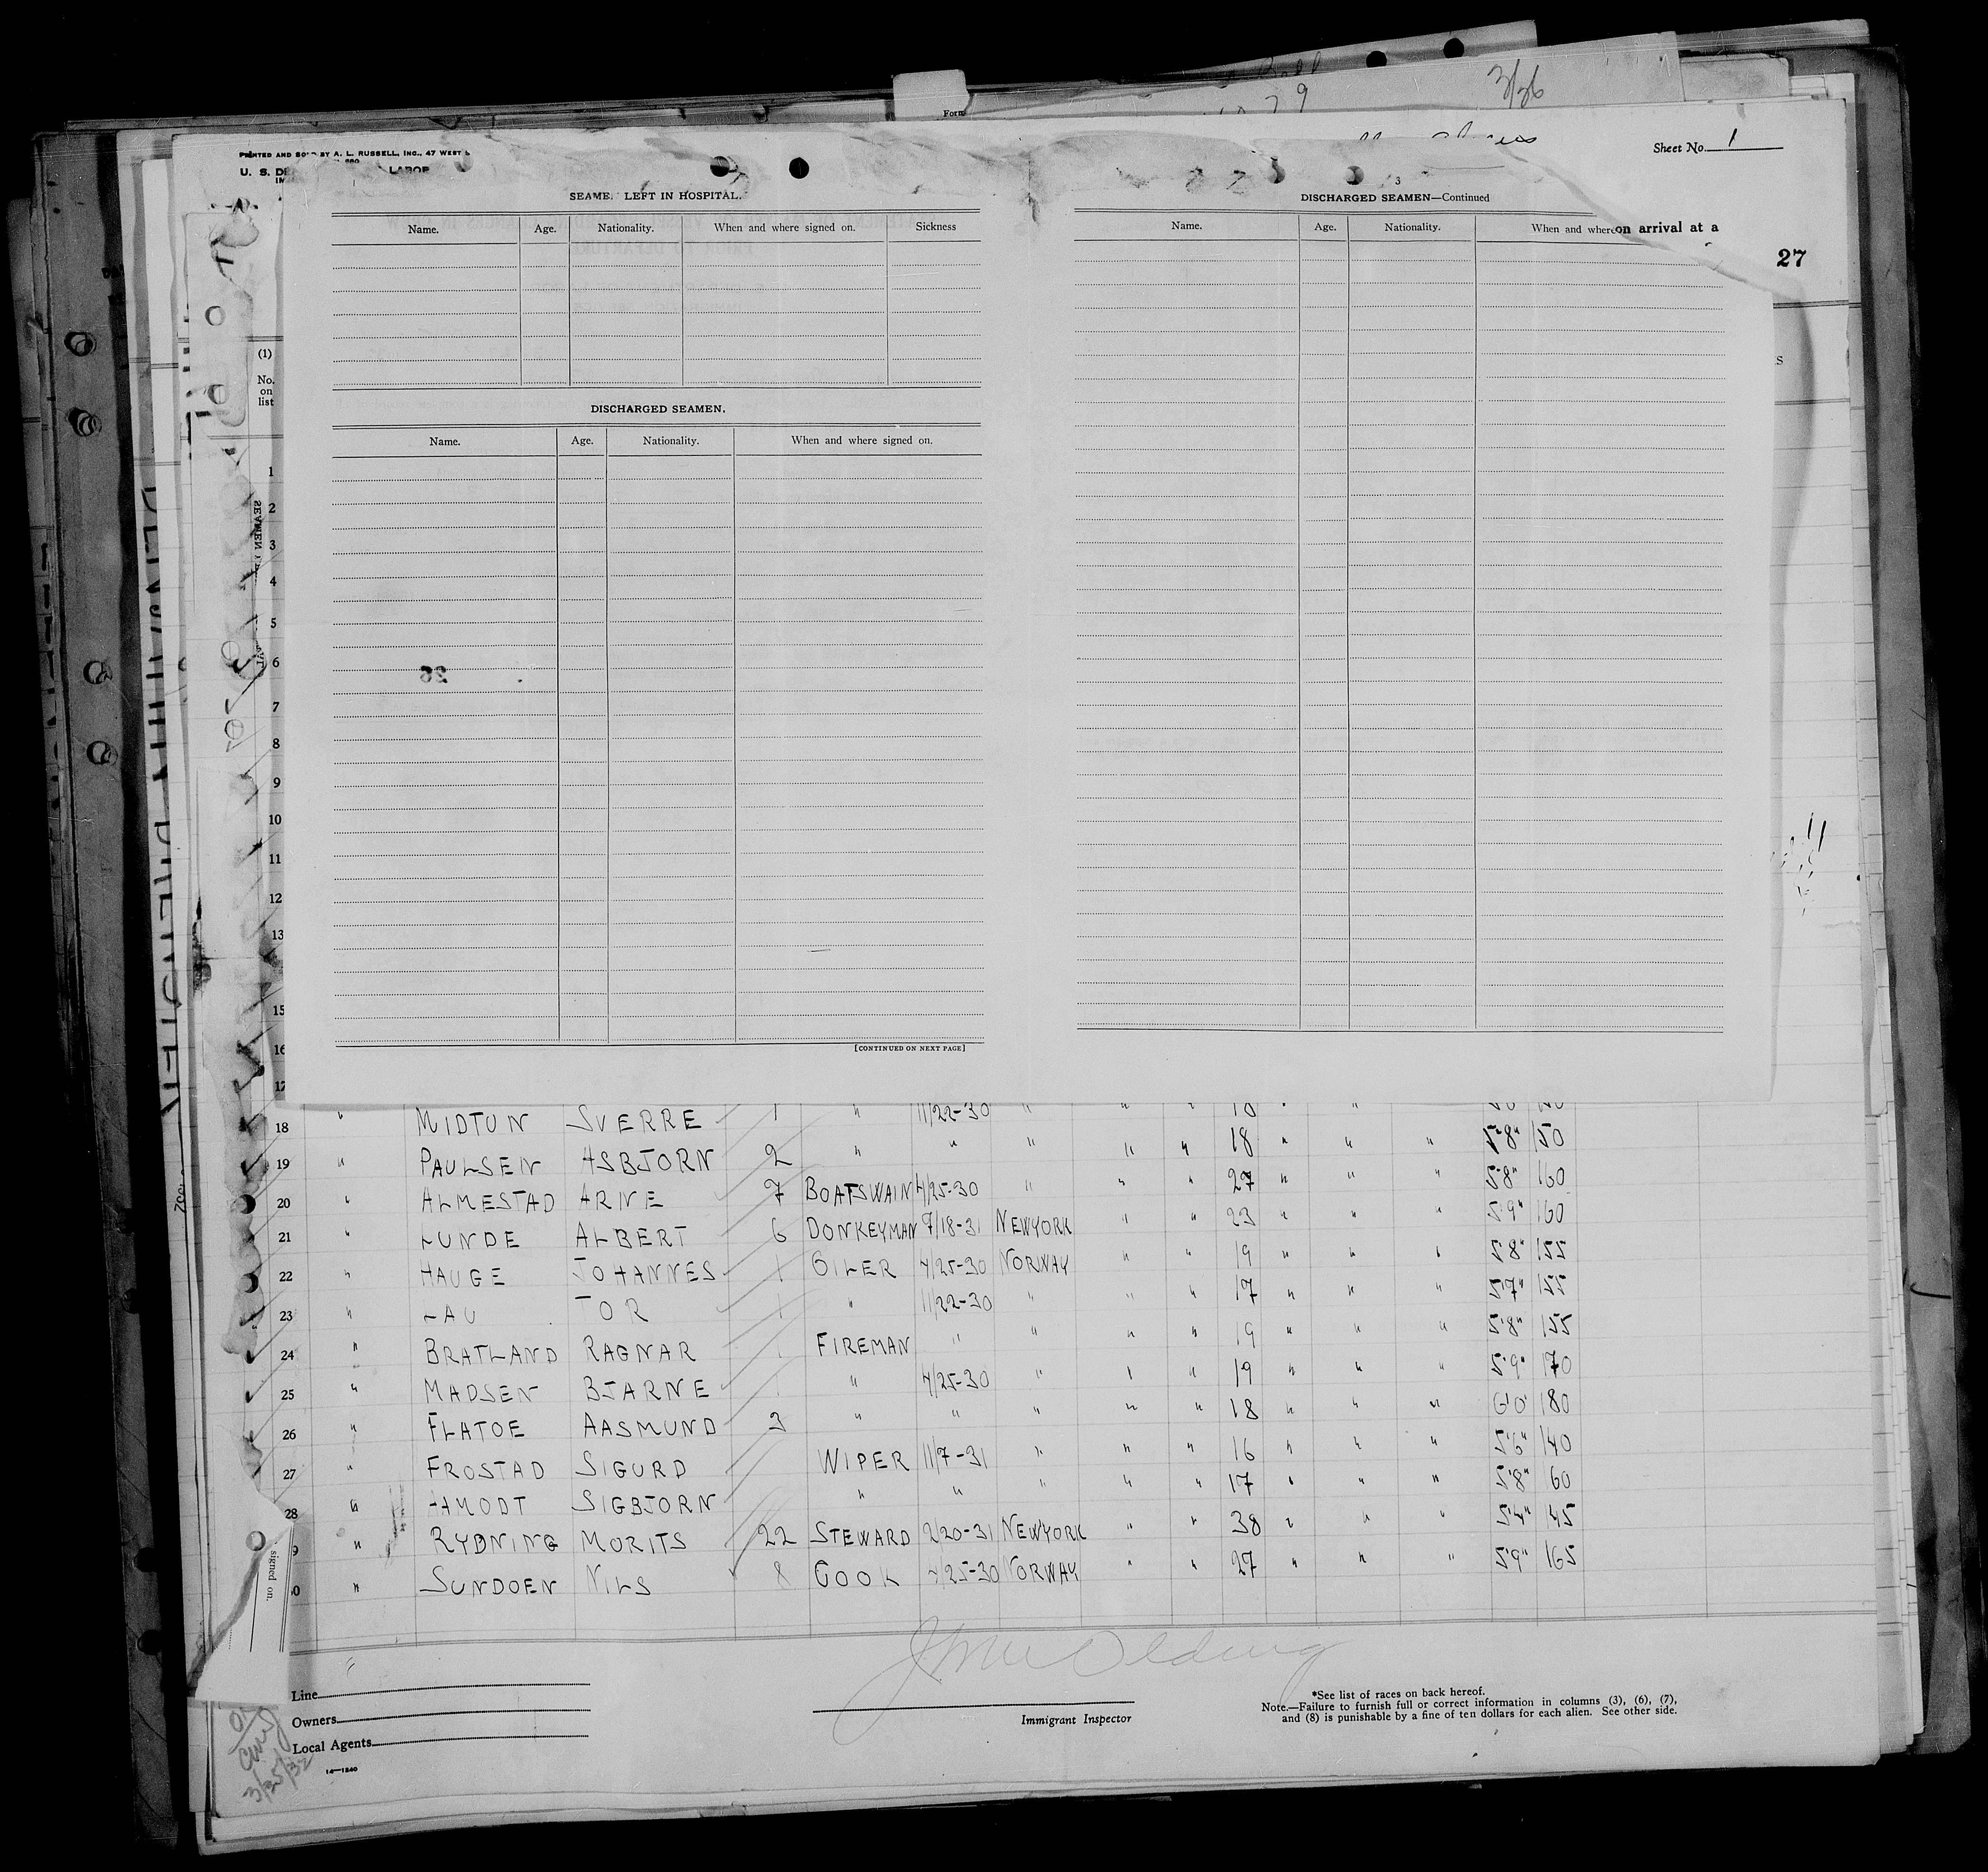 3/26
79
PRINTED AND SOLD BY A. L. RUSSELL, INC., 47 WEST
U. S. DE LABOR
Sheet No. 1
3
SEAME LEFT IN HOSPITAL.
Name. Age. Nationality. When and where signed on. Sickness
DISCHARGED SEAMEN—Continued
Name. Age. Nationality. When and where
on arrival at a
27
(1)
No. on list
DISCHARGED SEAMEN.
Name. Age. Nationality. When and where signed on.
1
2
3
4
5
6
7
8
9
10
11
12
13
15
16
17
[CONTINUED ON NEXT PAGE]
18 " MIDTUN SVERRE 1 " 11/22-30 " " " 18 " " "
19 " PAULSEN ASBJORN 2 " " " " " 18 " " " 5'8" 150
20 " ALMESTAD ARNE 7 BOATSWAIN 4/25-30 " " " 27 " " " 5'8" 160
21 " LUNDE ALBERT 6 DONKEYMAN 9/18-31 NEWYORK " " 23 " " " 5'9" 160
22 " HAUGE JOHANNES 1 OILER 4/25-30 NORWAY " " 19 " " " 5'8" 155
23 " LAU TOR 1 " 11/22-30 " " " 17 " " " 5'7" 155
24 " BRATLAND RAGNAR 1 FIREMAN " " " " 19 " " " 5'8" 155
25 " MADSEN BJARNE 1 " 4/25-30 " " " 19 " " " 5'9" 170
26 " FLATOE AASMUND 3 " " " " " 18 " " " 6'0" 180
27 " FROSTAD SIGURD WIPER 11/7-31 " " " 16 " " " 5'6" 140
28 " HAMODT SIGBJORN " " " " " 17 " " " 5'8" 160
9 " RYDNING MORITS 22 STEWARD 2/20-31 NEWYORK " " 38 " " " 5'4" 145
0 " SUNDOEN NILS 8 COOK 4/25-30 NORWAY " " 27 " " " 5'9" 165
signed on.
Line
Owners
Local Agents
14—1240
Immigrant Inspector
*See list of races on back hereof.
Note.—Failure to furnish full or correct information in columns (3), (6), (7),
and (8) is punishable by a fine of ten dollars for each alien. See other side.
3/25/32